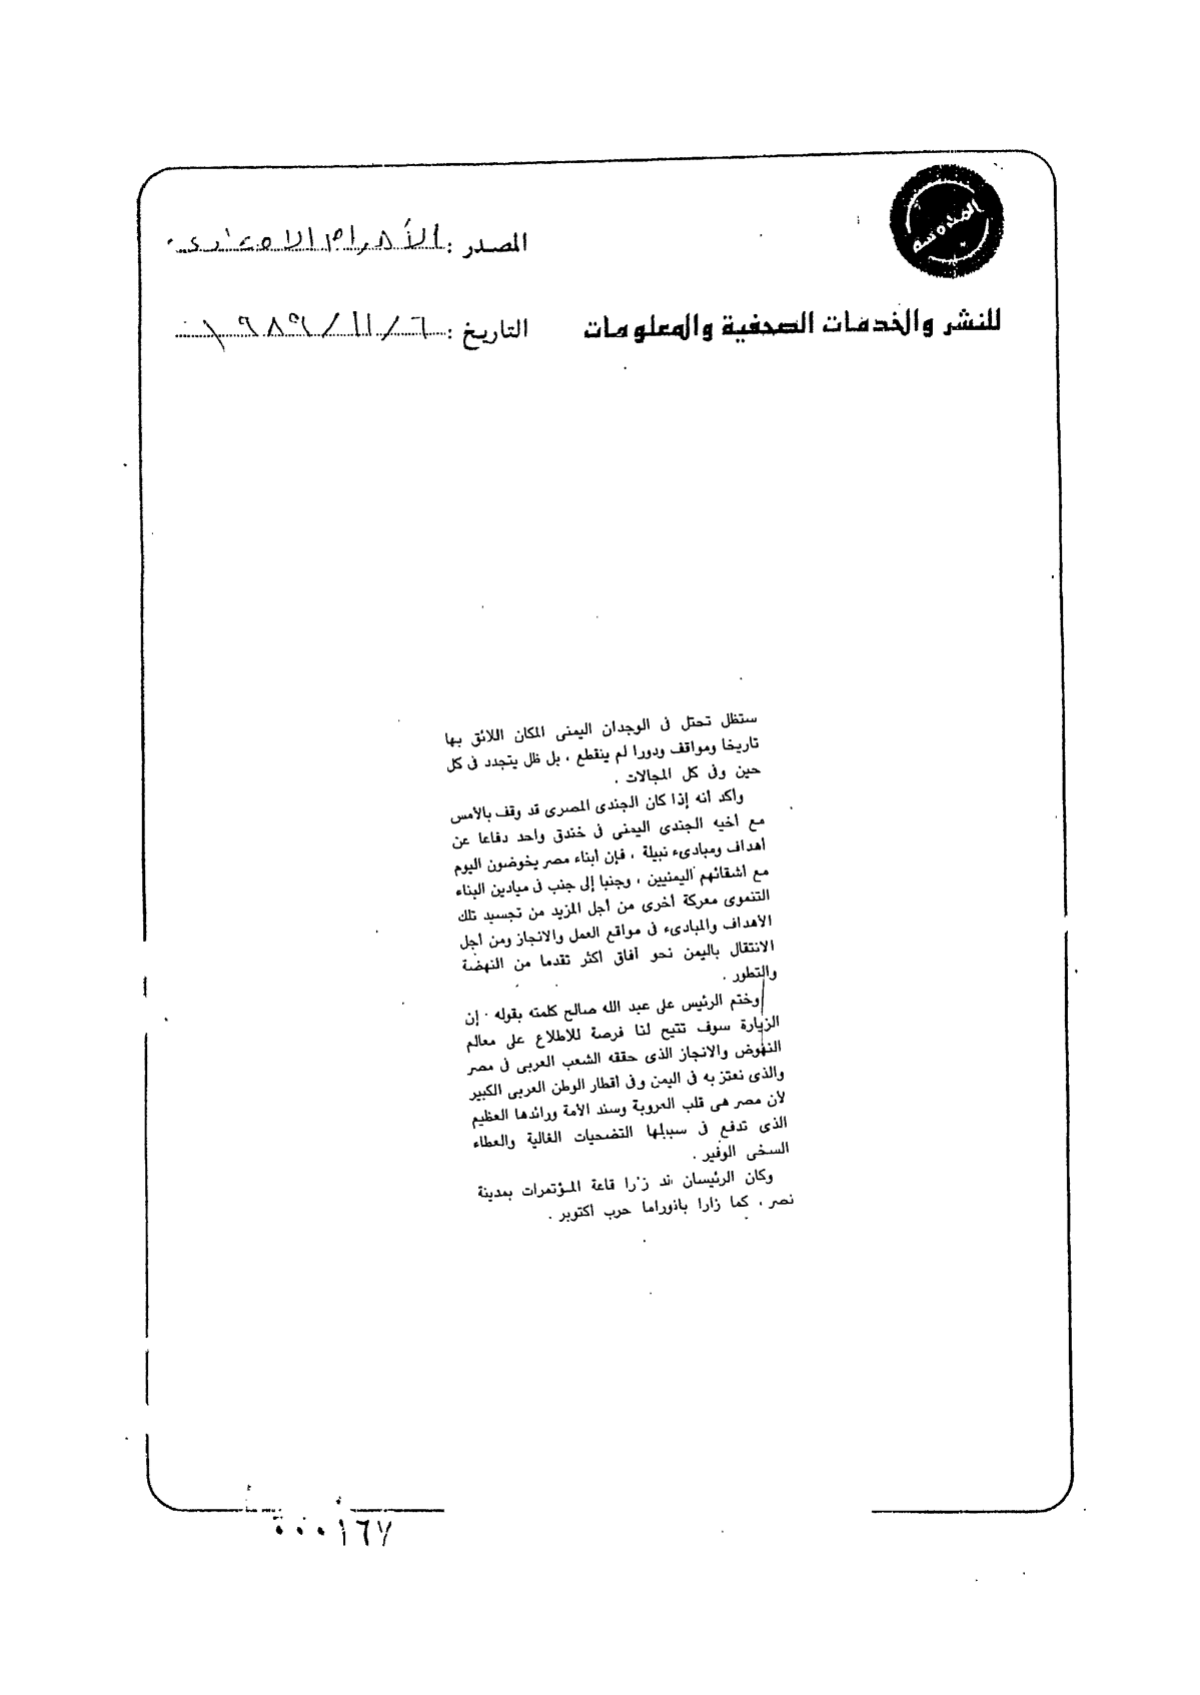 المحروسة
المصدر : الأهرام الاقتصادى
للنشر والخدمات الصحفية والمعلومات
التاريخ : ٦ / ١١ / ١٩٨٩
ستظل تحتل فى الوجدان اليمنى المكان اللائق بها
تاريخا ومواقف ودورا لم ينقطع ، بل ظل يتجدد فى كل
حين وفى كل المجالات .
وأكد أنه إذا كان الجندى المصرى قد وقف بالأمس
مع أخيه الجندى اليمنى فى خندق واحد دفاعا عن
أهداف ومبادىء نبيلة ، فإن أبناء مصر يخوضون اليوم
مع أشقائهم اليمنيين ، وجنبا إلى جنب فى ميادين البناء
التنموى معركة أخرى من أجل المزيد من تجسيد تلك
الأهداف والمبادىء فى مواقع العمل والانجاز ومن أجل
الانتقال باليمن نحو آفاق أكثر تقدما من النهضة
والتطور .
وختم الرئيس على عبد الله صالح كلمته بقوله : إن
الزيارة سوف تتيح لنا فرصة للاطلاع على معالم
النهوض والانجاز الذى حققه الشعب العربى فى مصر
والذى نعتز به فى اليمن وفى أقطار الوطن العربى الكبير
لأن مصر هى قلب العروبة وسند الأمة ورائدها العظيم
الذى تدفع فى سبيلها التضحيات الغالية والعطاء
السخى الوفير .
وكان الرئيسان قد زارا قاعة المؤتمرات بمدينة
نصر ، كما زارا بانوراما حرب اكتوبر .
٠٠٠١٦٧